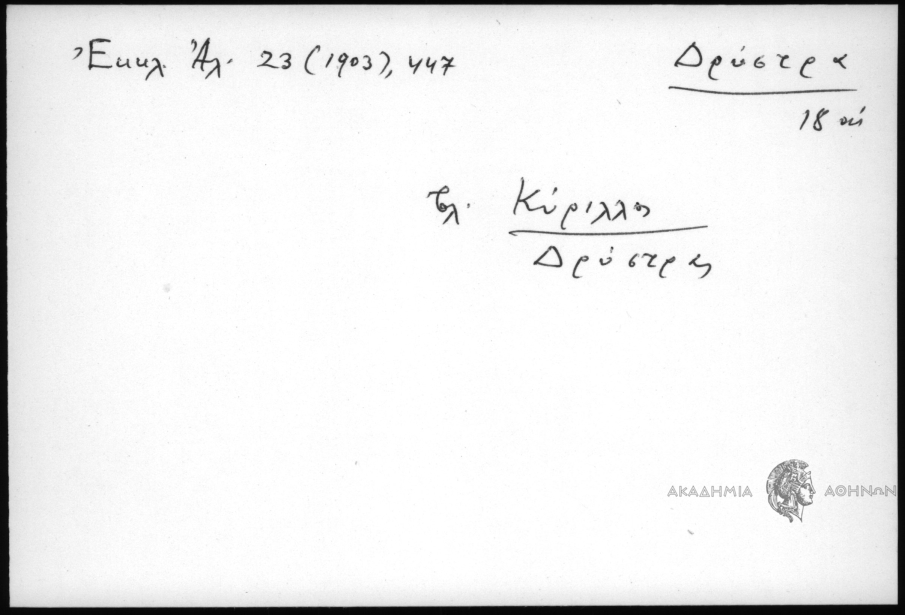 Ἐκκλ. Ἀλ. 23 (1903), 447
Δρύστρα
18 αἰ
βλ. Κύριλλος
Δρύστρας
ΑΚΑΔΗΜΙΑ ΑΘΗΝΩΝ